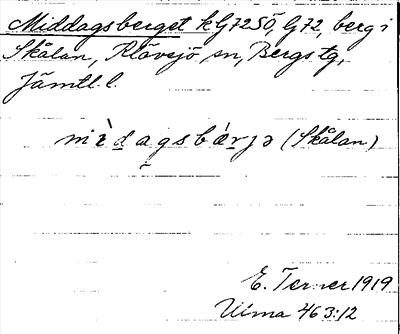 Middagsberget k G72SÖ, G72, berg i
Skålan, Klövsjö sn, Bergs tg,
Jämtl. l.
mìdagsbárjə (Skålan)
E. Terner 1919
Ulma 463:12